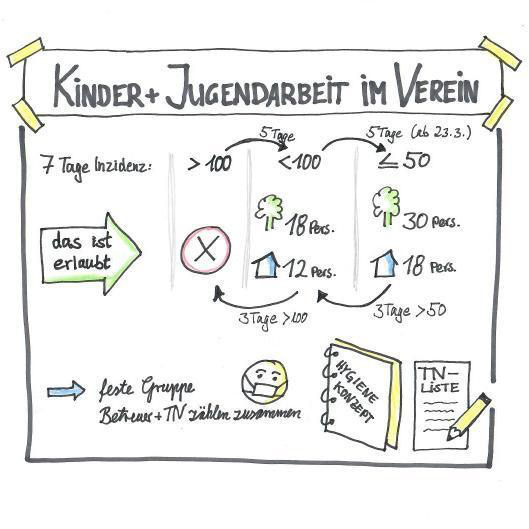 KINDER + JUGENDARBEIT IM VEREIN
5 Tage
5 Tage (ab 23.3.)
7 Tage Inzidenz: > 100 < 100 ≤ 50
das ist
erlaubt
X
18 Pers.
30 Pers.
12 Pers.
18 Pers.
3 Tage > 100
3 Tage > 50
feste Gruppe
Betreuer + TN zählen zusammen
HYGIENE
KONZEPT
TN-
LISTE